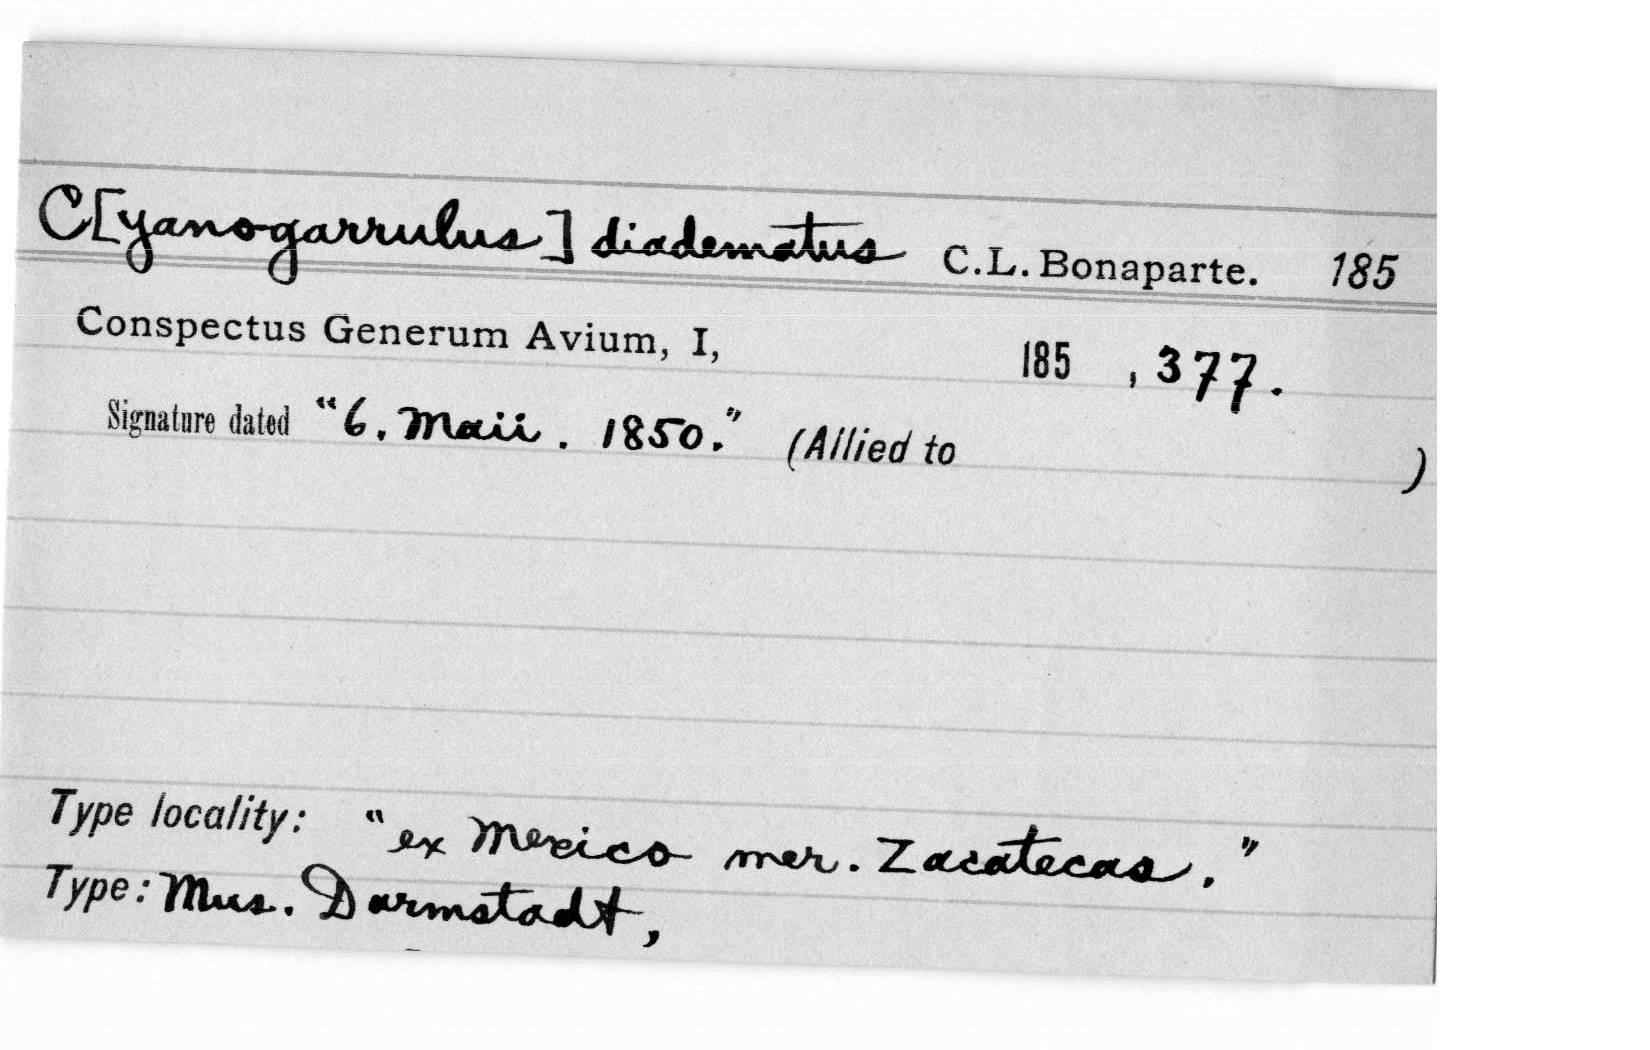 C[yanogarrulus] diadematus C.L. Bonaparte. 185
Conspectus Generum Avium, I, 185 , 377.
Signature dated "6. Maii. 1850." (Allied to )
Type locality: "ex Mexico mer. Zacatecas."
Type: Mus. Darmstadt,